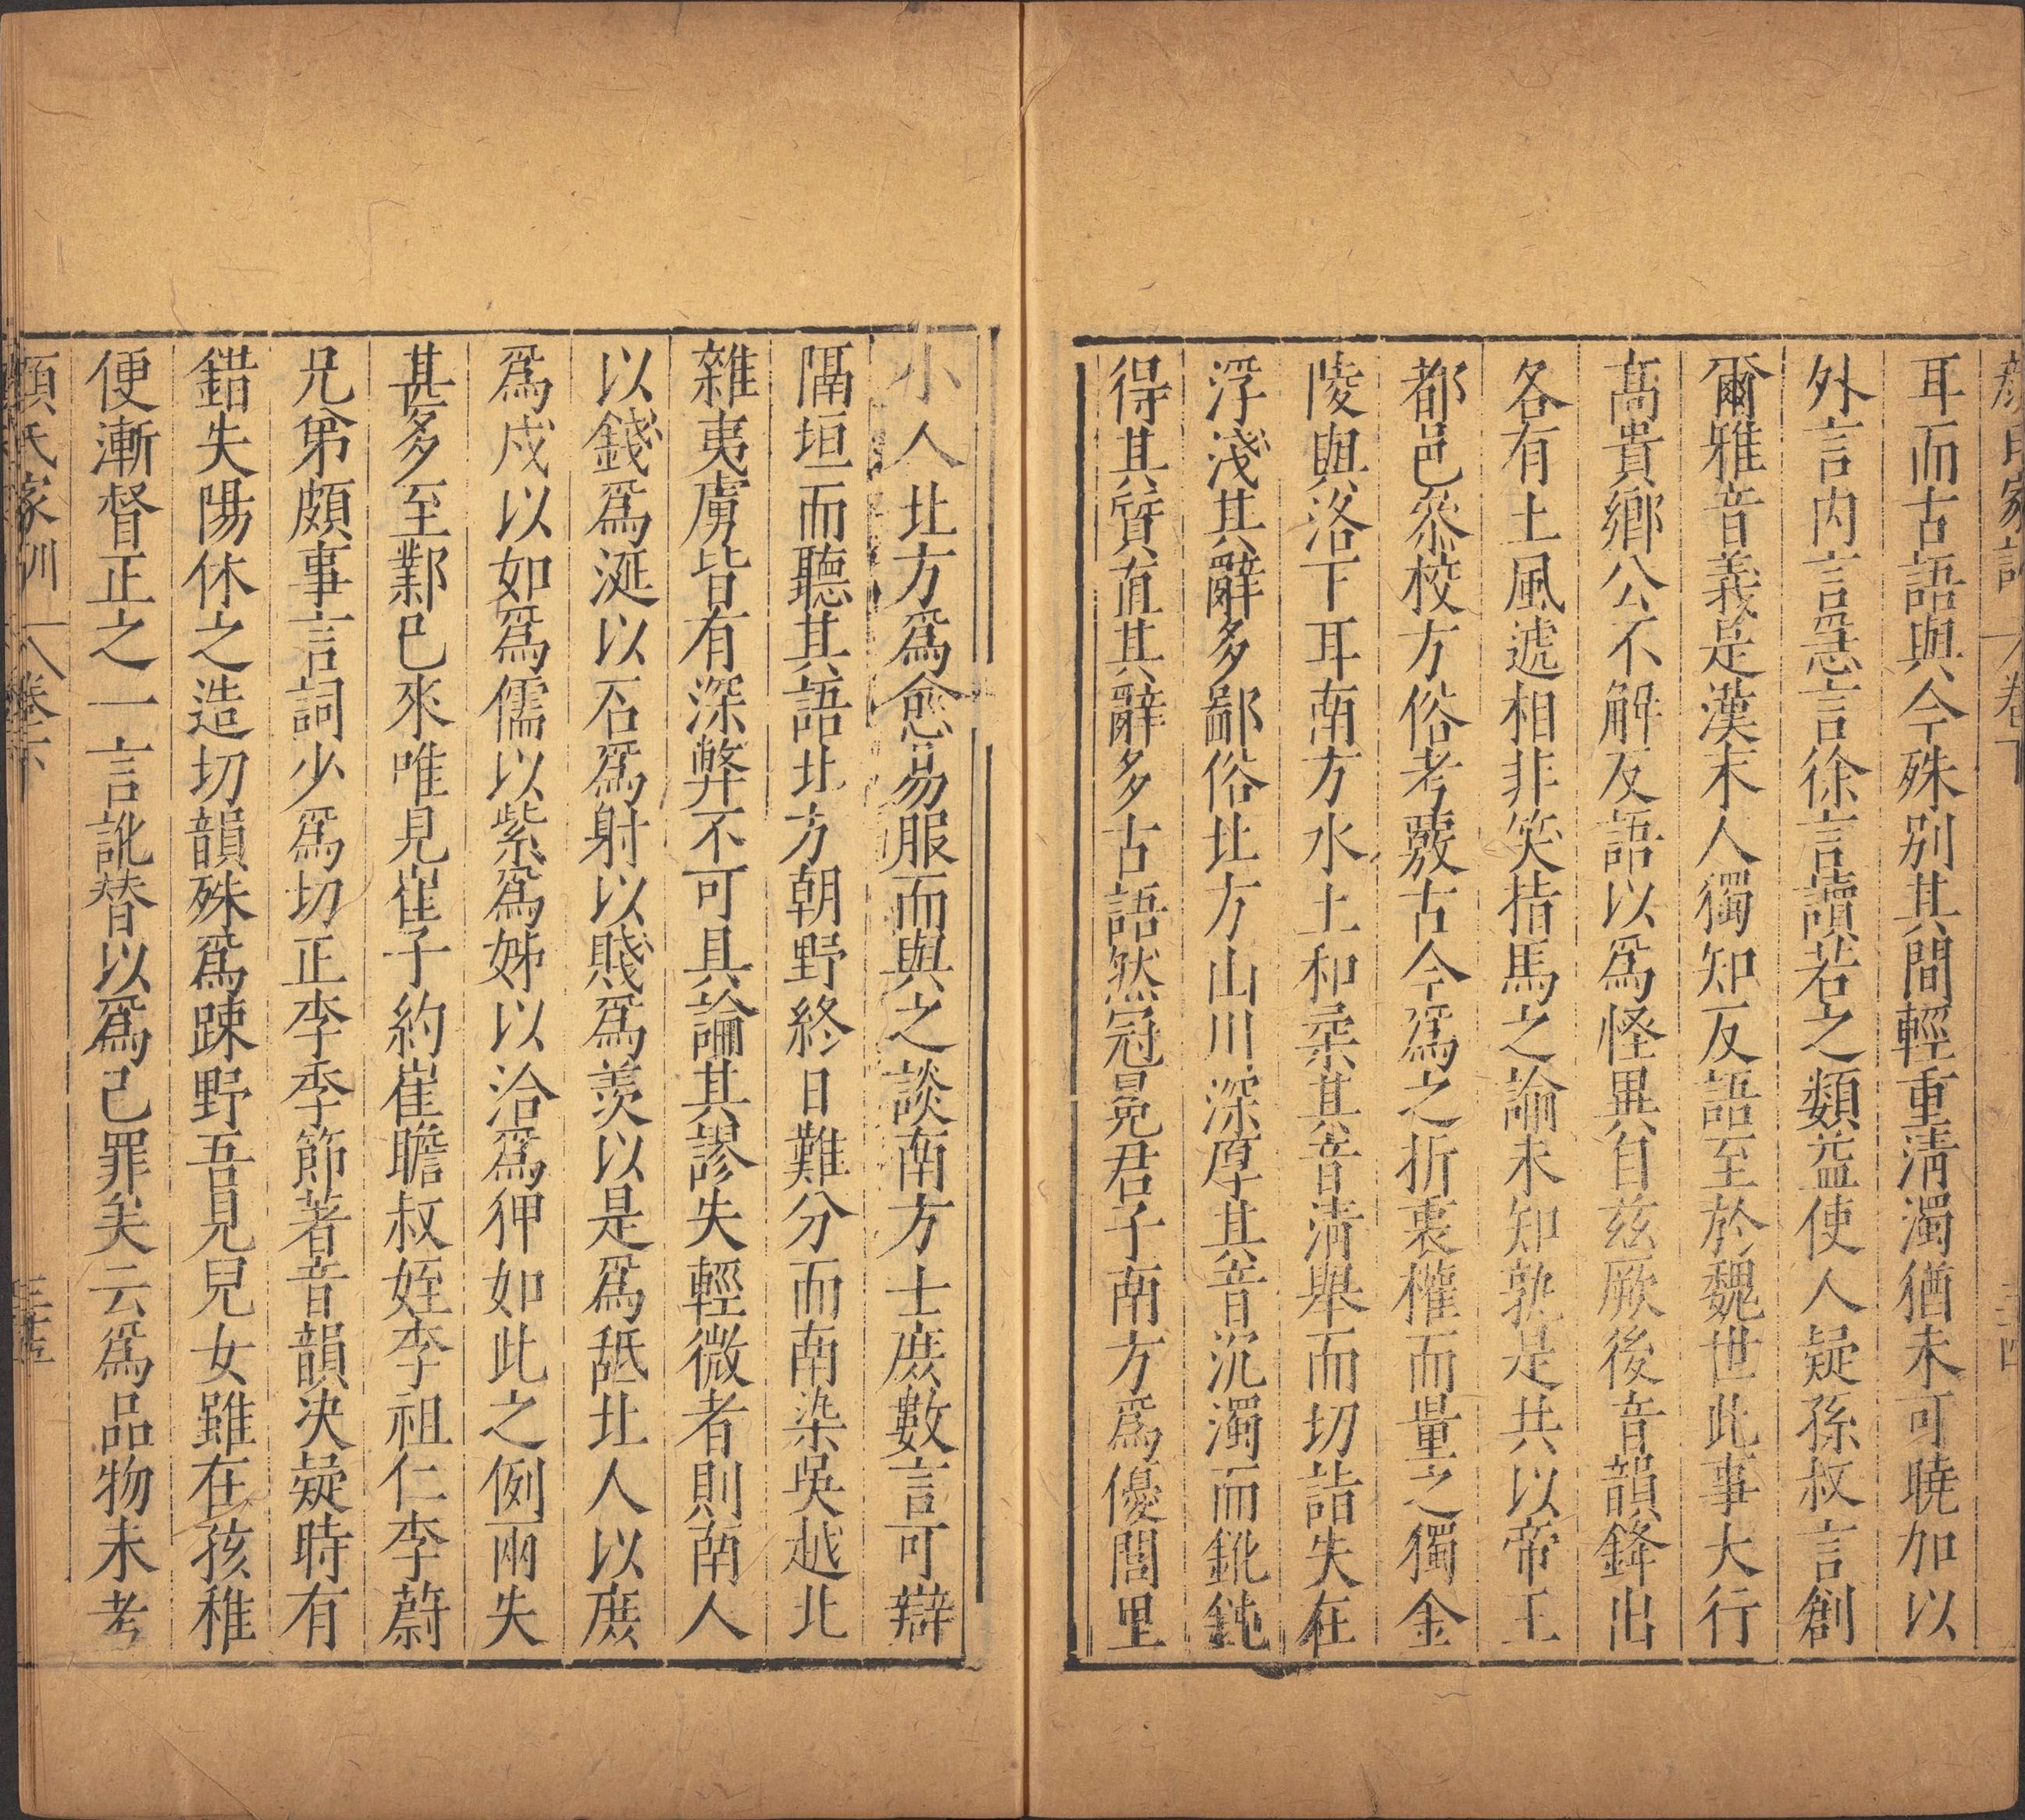 顏氏家訓 卷下 三十四
耳而古語與今殊別其間輕重清濁猶未可曉加以
外言內言急言徐言讀若之類益使人疑孫叔言創
爾雅音義是漢末人獨知反語至於魏世此事大行
高貴鄉公不解反語以爲怪異自茲厥後音韻鋒出
各有土風遞相非笑指馬之諭未知孰是共以帝王
都邑叅校方俗考覈古今爲之折衷權而量之獨金
陵與洛下耳南方水土和柔其音清舉而切詣失在
浮淺其辭多鄙俗北方山川深厚其音沉濁而鈋鈍
得其質直其辭多古語然冠冕君子南方爲優閭里
小人北方爲愈易服而與之談南方士庶數言可辯
隔垣而聽其語北方朝野終日難分而南染吳越北
雜夷虜皆有深弊不可具論其謬失輕微者則南人
以錢爲涎以石爲射以賤爲羨以是爲舐北人以庶
爲戍以如爲儒以紫爲姊以洽爲狎如此之例兩失
甚多至鄴已來唯見崔子約崔瞻叔姪李祖仁李蔚
兄弟頗事言詞少爲切正李季節著音韻決疑時有
錯失陽休之造切韻殊爲踈野吾見兒女雖在孩稚
便漸督正之一言訛替以爲己罪矣云爲品物未考
顏氏家訓 卷下 三十五